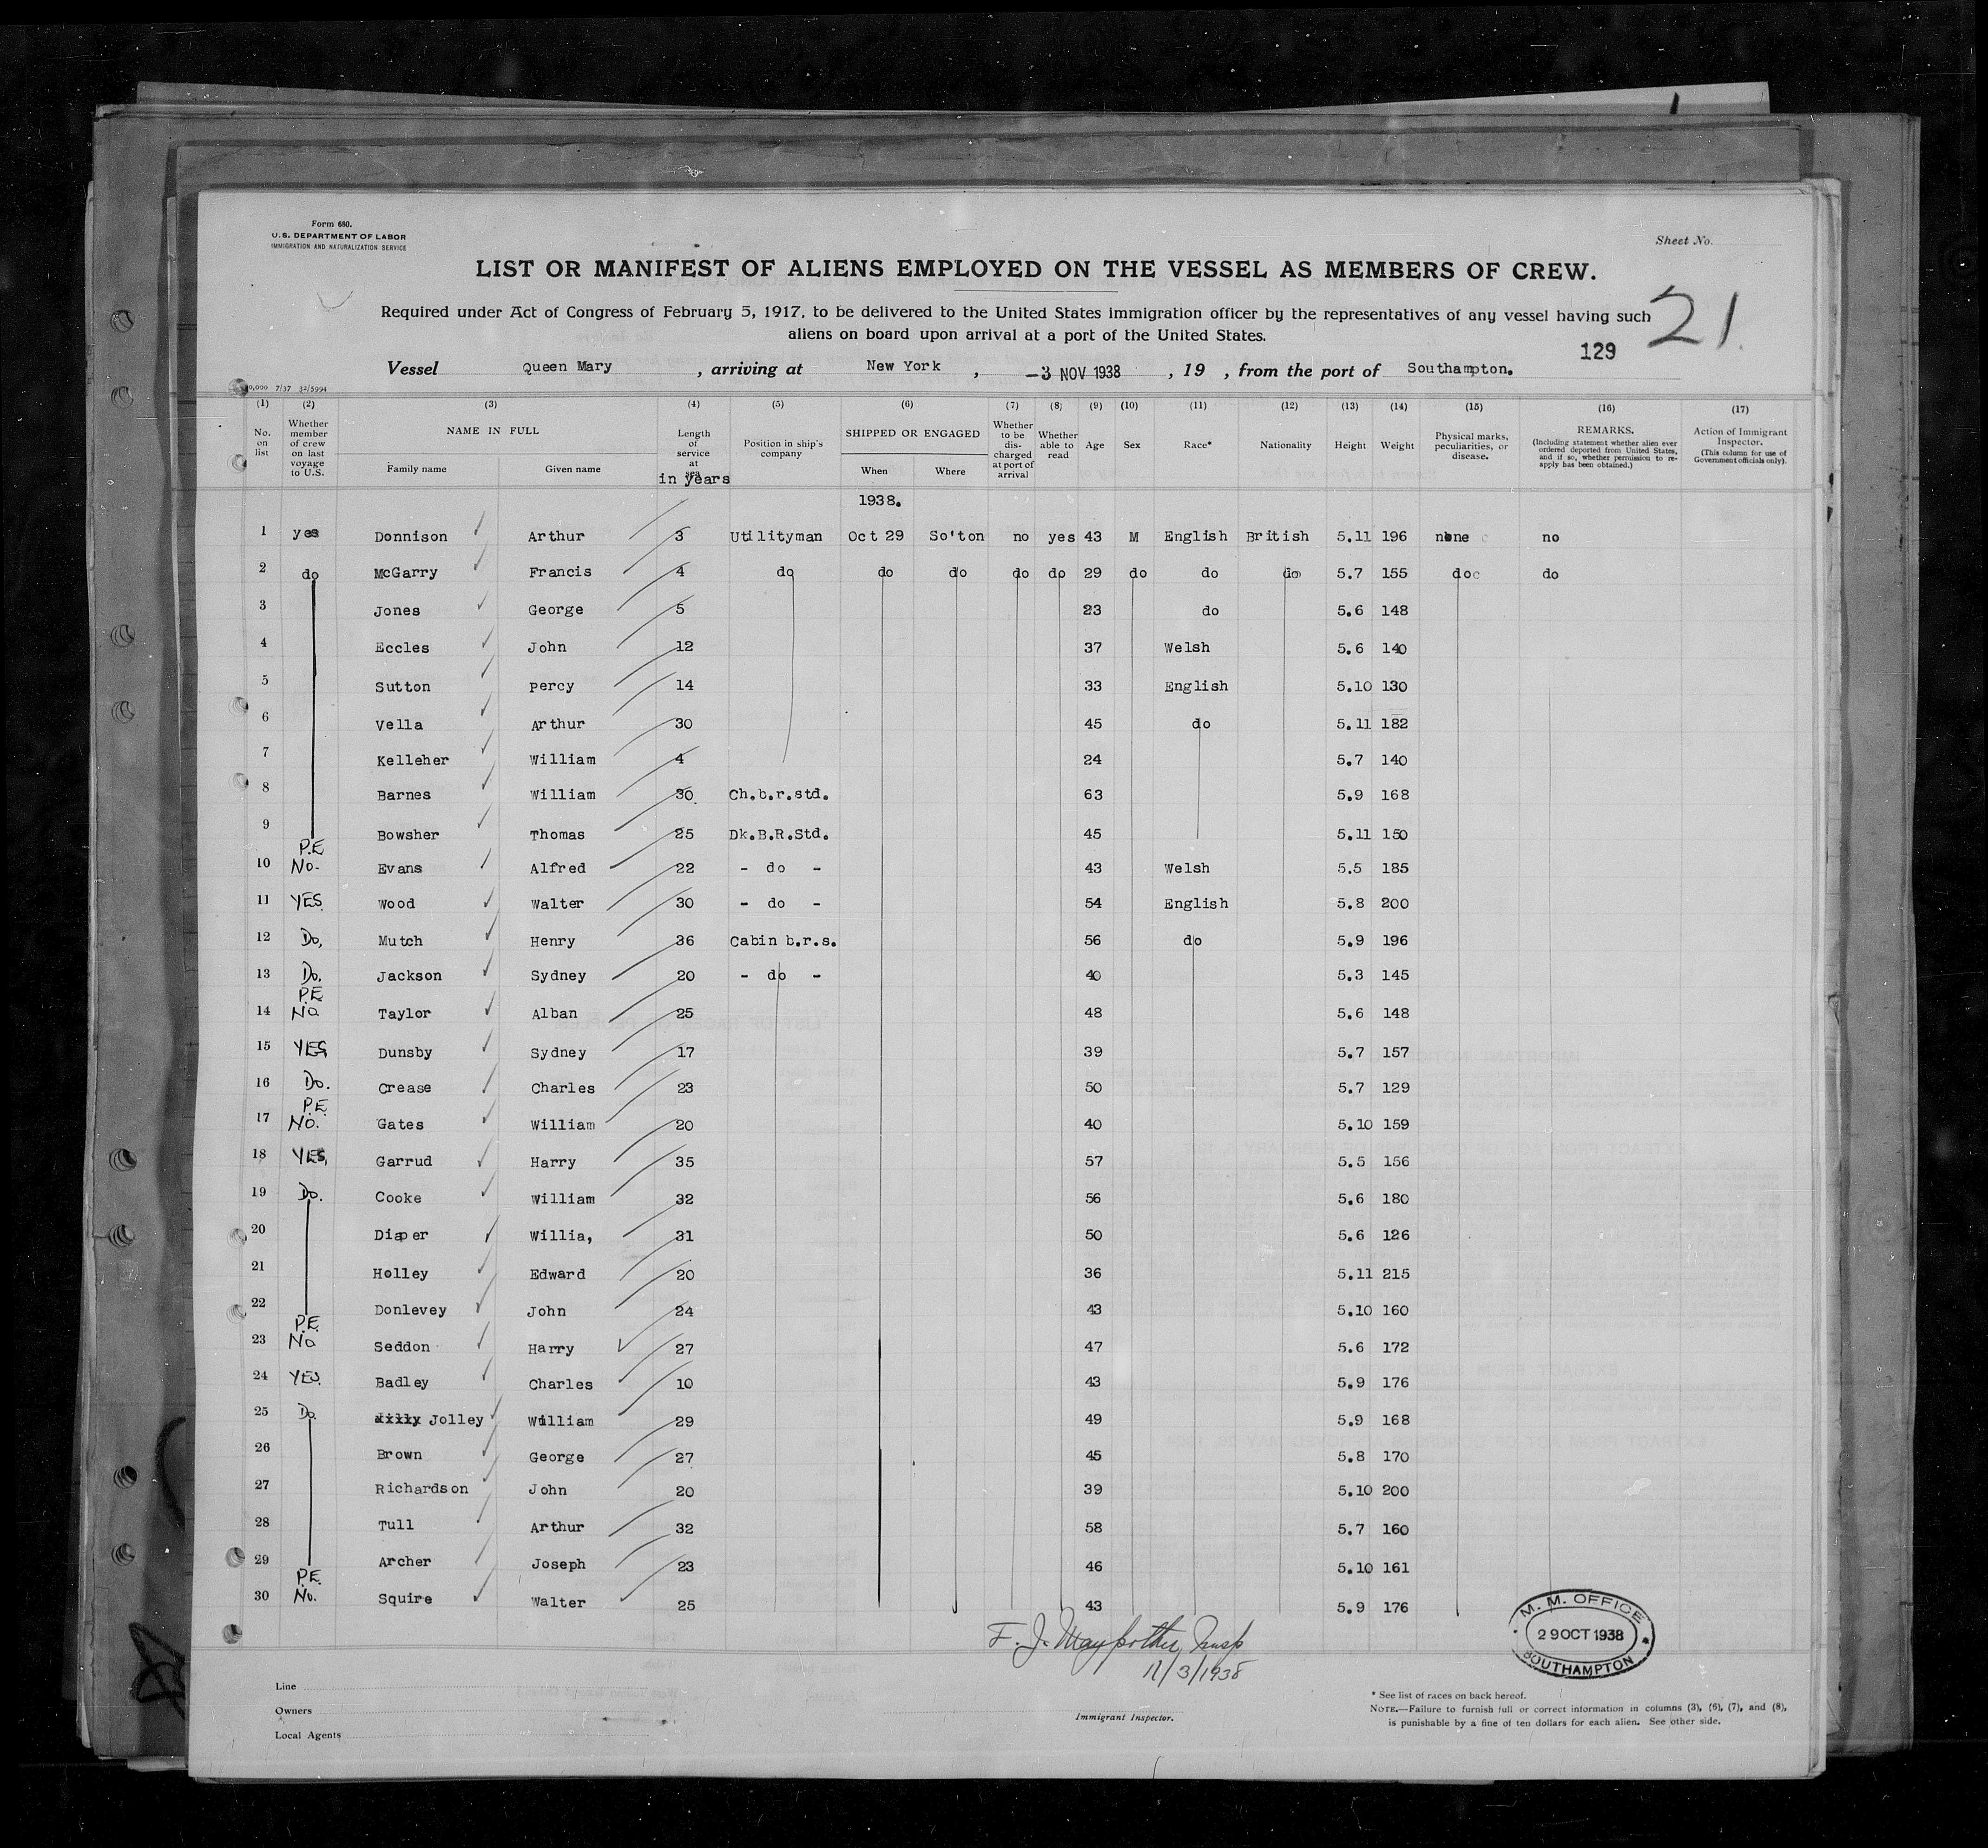 Form 680.
U.S. DEPARTMENT OF LABOR
IMMIGRATION AND NATURALIZATION SERVICE
Sheet No.
LIST OR MANIFEST OF ALIENS EMPLOYED ON THE VESSEL AS MEMBERS OF CREW.
Required under Act of Congress of February 5, 1917, to be delivered to the United States immigration officer by the representatives of any vessel having such
aliens on board upon arrival at a port of the United States.
21
129
Vessel Queen Mary , arriving at New York , -3 NOV 1938 , 19 , from the port of Southampton.
0,000 7/37 32/5994
(1) (2) (3) (4) (5) (6) (7) (8) (9) (10) (11) (12) (13) (14) (15) (16) (17)
No. on list
Whether member of crew on last voyage to U.S.
NAME IN FULL
Family name
Given name
Length of service at sea
in years
Position in ship's company
SHIPPED OR ENGAGED
When
Where
Whether to be discharged at port of arrival
Whether able to read
Age
Sex
Race*
Nationality
Height
Weight
Physical marks, peculiarities, or disease.
REMARKS.
(Including statement whether alien ever ordered deported from United States, and if so, whether permission to reapply has been obtained.)
Action of Immigrant Inspector.
(This column for use of Government officials only).
1938.
1 yes Donnison Arthur 3 Utilityman Oct 29 So'ton no yes 43 M English British 5.11 196 none no
2 do McGarry Francis 4 do do do do do 29 do do do 5.7 155 do do
3 Jones George 5 23 do 5.6 148
4 Eccles John 12 37 Welsh 5.6 140
5 Sutton percy 14 33 English 5.10 130
6 Vella Arthur 30 45 do 5.11 182
7 Kelleher William 4 24 5.7 140
8 Barnes William 30 Ch.b.r.std. 63 5.9 168
9 Bowsher Thomas 25 Dk.B.R.Std. 45 5.11 150
P.E
10 No. Evans Alfred 22 - do - 43 Welsh 5.5 185
11 YES Wood Walter 30 - do - 54 English 5.8 200
12 Do, Mutch Henry 36 Cabin b.r.s. 56 do 5.9 196
13 Do. Jackson Sydney 20 - do - 40 5.3 145
P.E
14 No Taylor Alban 25 48 5.6 148
15 YES Dunsby Sydney 17 39 5.7 157
16 Do. Crease Charles 23 50 5.7 129
P.E.
17 No. Gates William 20 40 5.10 159
18 YES, Garrud Harry 35 57 5.5 156
19 Do. Cooke William 32 56 5.6 180
20 Diaper Willia, 31 50 5.6 126
21 Holley Edward 20 36 5.11 215
22 Donlevey John 24 43 5.10 160
P.E.
23 No Seddon Harry 27 47 5.6 172
24 YES. Badley Charles 10 43 5.9 176
25 Do. Jolley William 29 49 5.9 168
26 Brown George 27 45 5.8 170
27 Richardson John 20 39 5.10 200
28 Tull Arthur 32 58 5.7 160
29 Archer Joseph 23 46 5.10 161
P.E.
30 No. Squire Walter 25 43 5.9 176
F. J. Maypother Insp
11/3/1938
M. M. OFFICE
29 OCT 1938
SOUTHAMPTON
Line
Owners
Local Agents
Immigrant Inspector.
* See list of races on back hereof.
NOTE.—Failure to furnish full or correct information in columns (3), (6), (7), and (8),
is punishable by a fine of ten dollars for each alien. See other side.